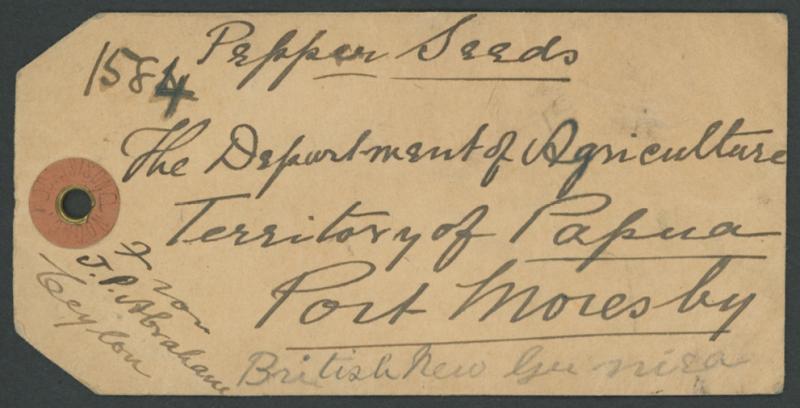 1584
Pepper Seeds
The Department of Agriculture
Territory of Papua
Port Moresby
British New Guinea
From
J. P. Abraham
Ceylon